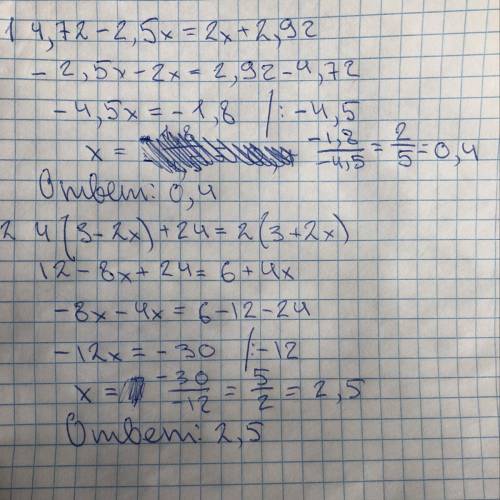 1 4,72-2,5x=2x+2,92
-2,5x-2x=2,92-4,72
-4,5x=-1,8 /:-4,5
x= -1,8/-4,5=2/5=0,4
Ответ: 0,4
2 4(3-2x)+24=2(3+2x)
12-8x+24=6+4x
-8x-4x=6-12-24
-12x=-30 /:-12
x= -30/-12=5/2=2,5
Ответ: 2,5